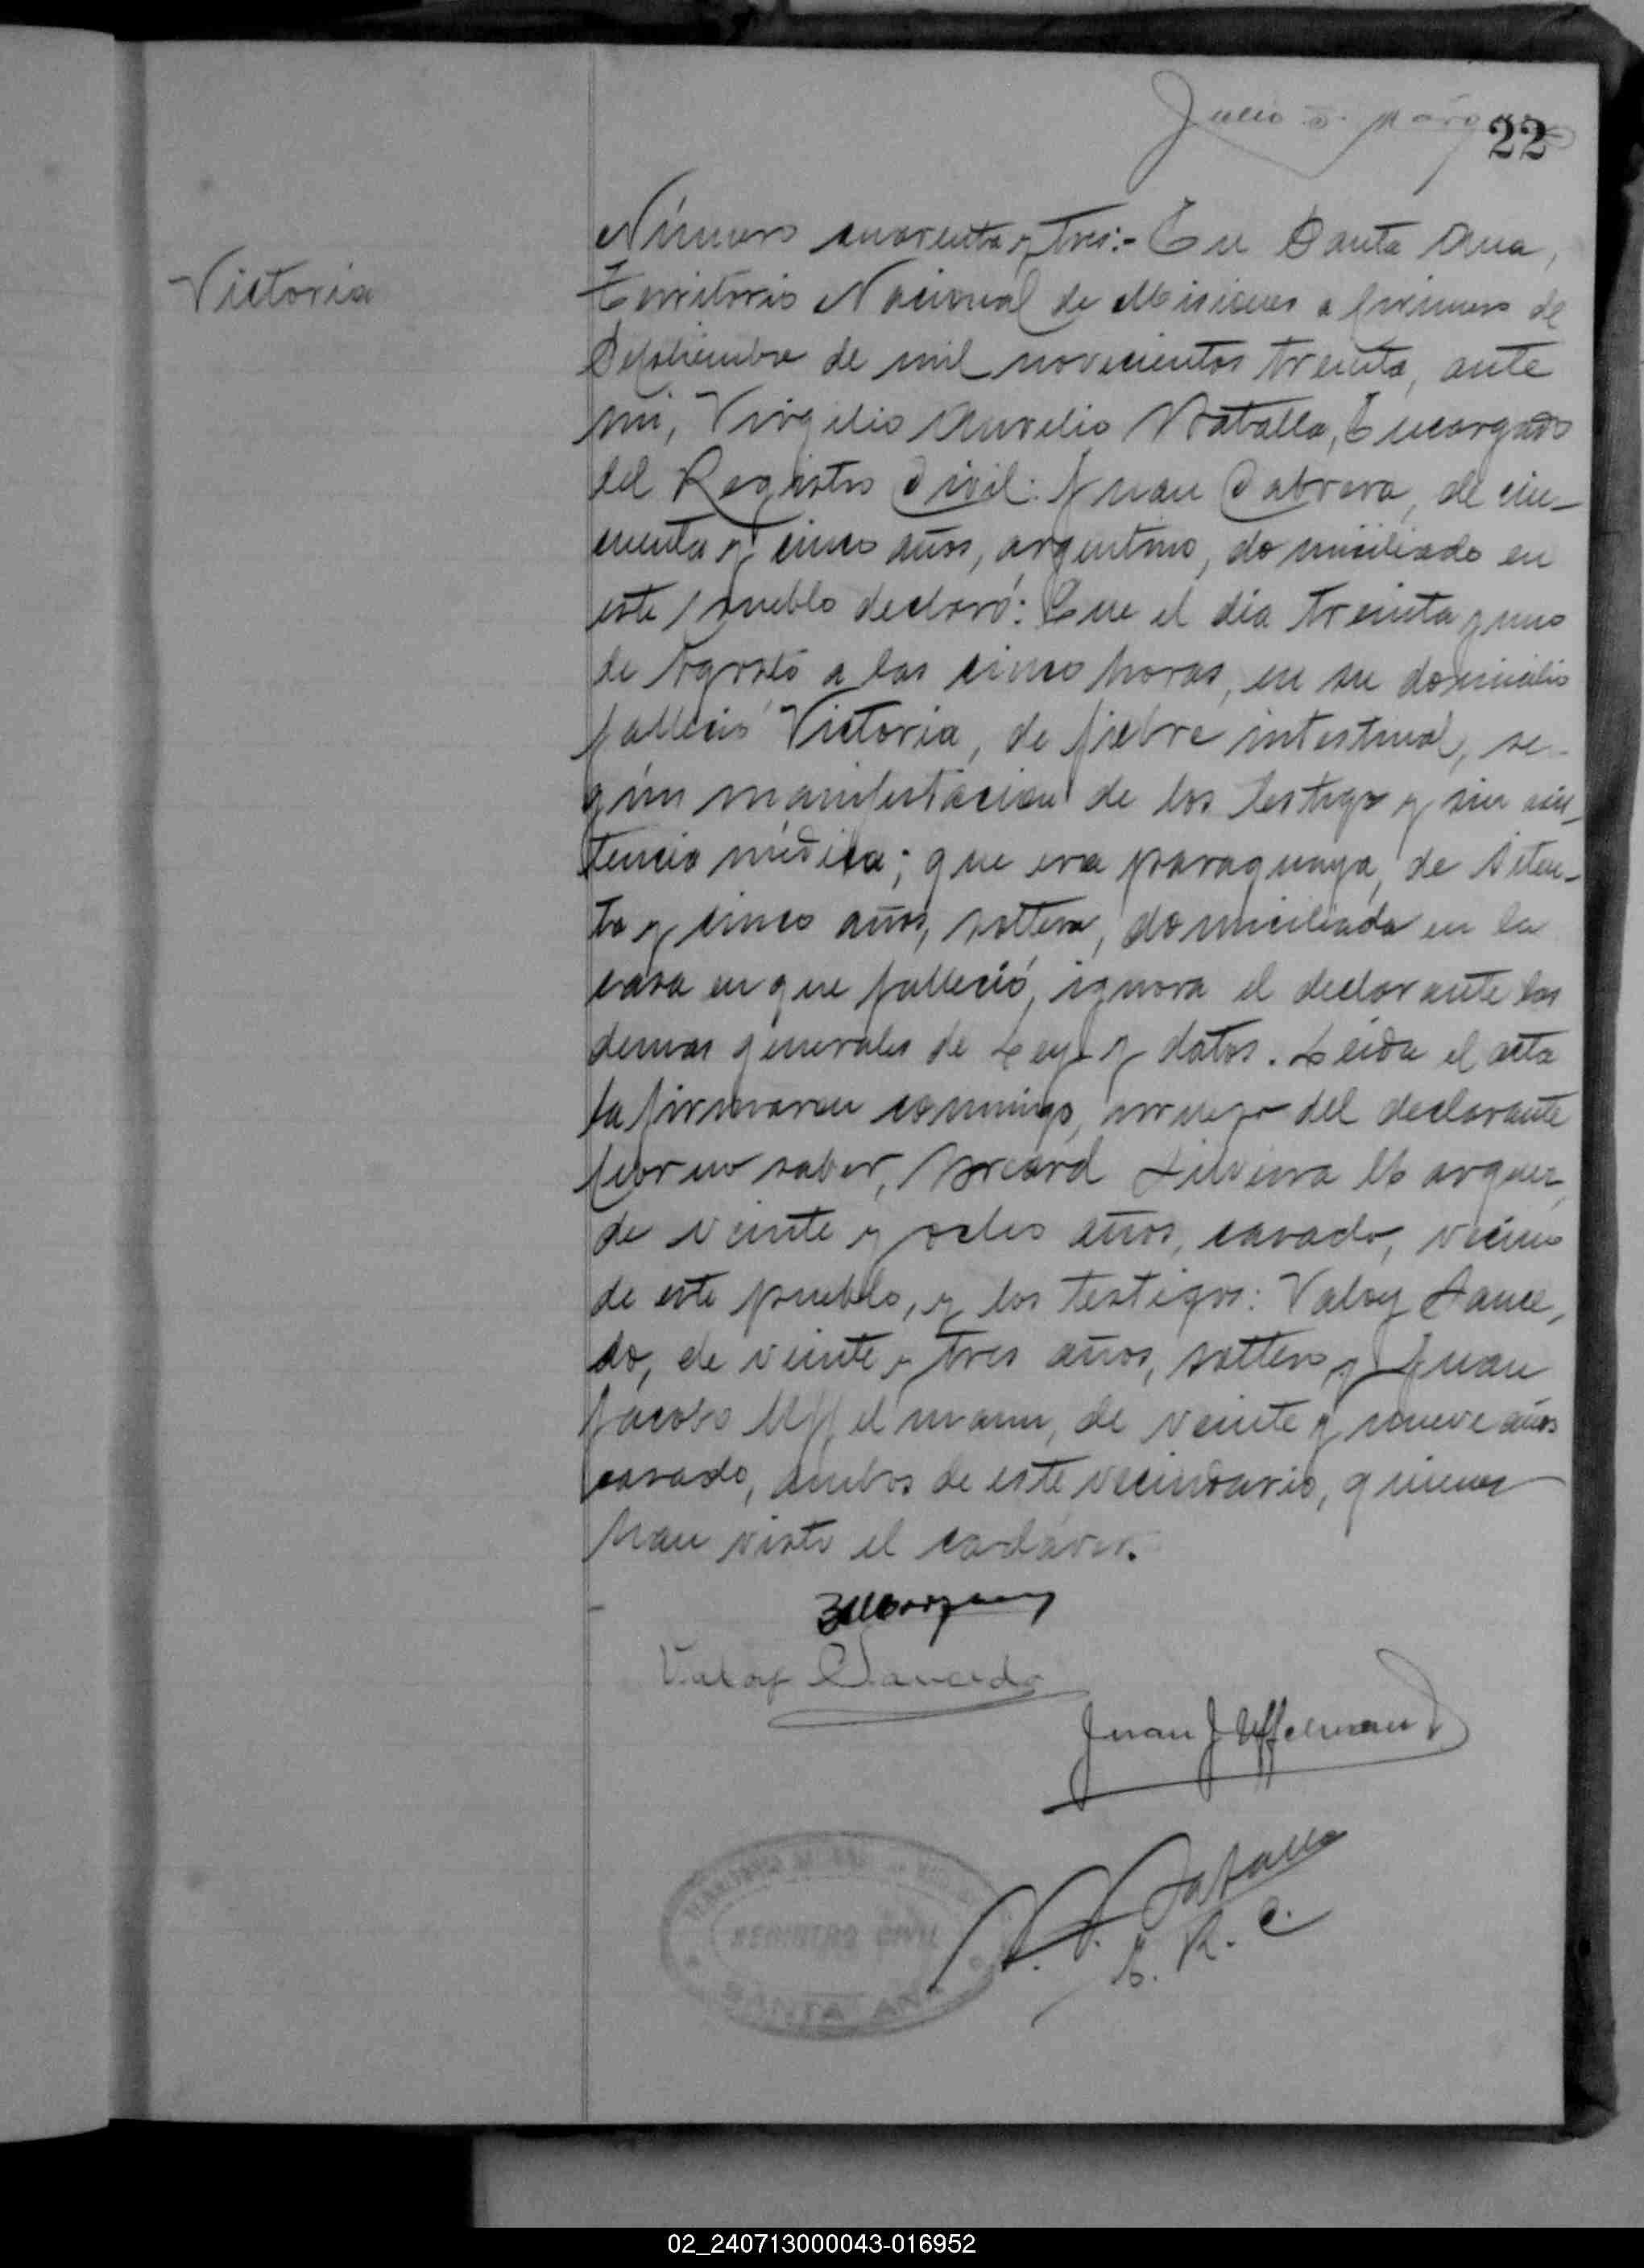 Julio
22
Victoria
Número cuarenta y tres:- En Santa Ana,
Territorio Nacional de Misiones a primero de
Septiembre de mil novecientos treinta, ante
mi, Virgilio Aurelio Ratallo, Encargado
del Registro Civil: Juan Cabrera, de cin-
cuenta y cinco años, argentino, domiciliado en
este pueblo declaró: Que el dia treinta y uno
de Agosto a las cinco horas, en su domicilio
falleció Victoria, de fiebre intestinal, se-
gún manifestacion de los testigos y sin asis-
tencia médica; que era paraguaya, de seten-
ta y cinco años, soltera, domiciliada en la
casa en que falleció, ignora el declarante las
demas generales de Ley y datos. Leida el acta
la firmaron conmigo, a ruego del declarante
por no saber, Silveira Marquez,
de veinte y ocho años, casado, vecino
de este pueblo, y los testigos: Valoy Sauce-
do, de veinte y tres años, soltero y Juan
Jacobo Uffelmann, de veinte y nueve años
casado, ambos de este vecindario, quienes
han visto el cadáver.
Valoy Saucedo
Juan J Uffelmann
E. R. C.
REGISTRO CIVIL
SANTA ANA
02_240713000043-016952